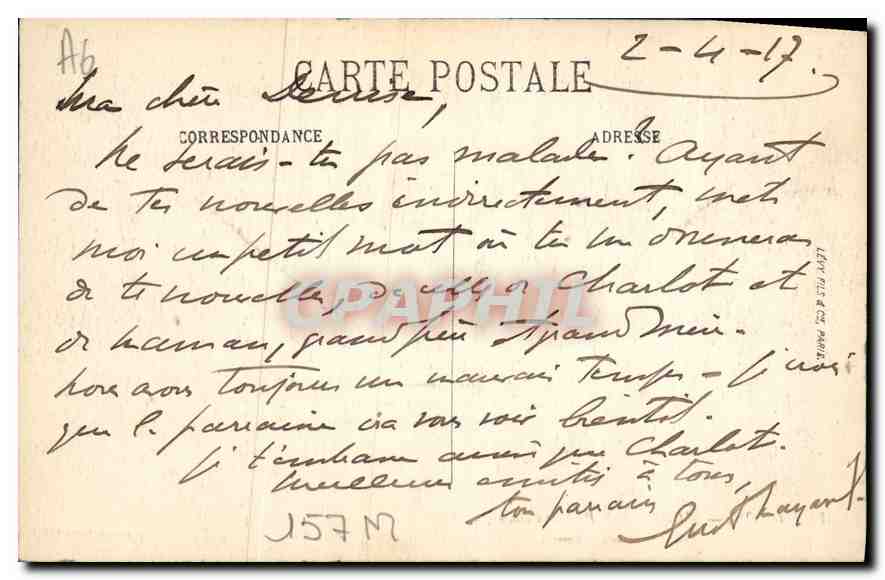 Ab
2-4-17.
CARTE POSTALE
Ma chère Denise,
CORRESPONDANCE
ADRESSE
Ne serais-tu pas malade? Ayant
de tes nouvelles indirectement, mets
moi un petit mot où tu me donneras
de tes nouvelles, de celles de Charlot et
de maman, grand père et grand mère.
Nous avons toujours un mauvais temps - je crois
que la marraine ira vous voir bientôt.
je t'embrasse ainsi que Charlot.
Meilleures amitiés à tous,
ton parrain
LÉVY FILS & Cie, PARIS.
CPAPHIL
157M